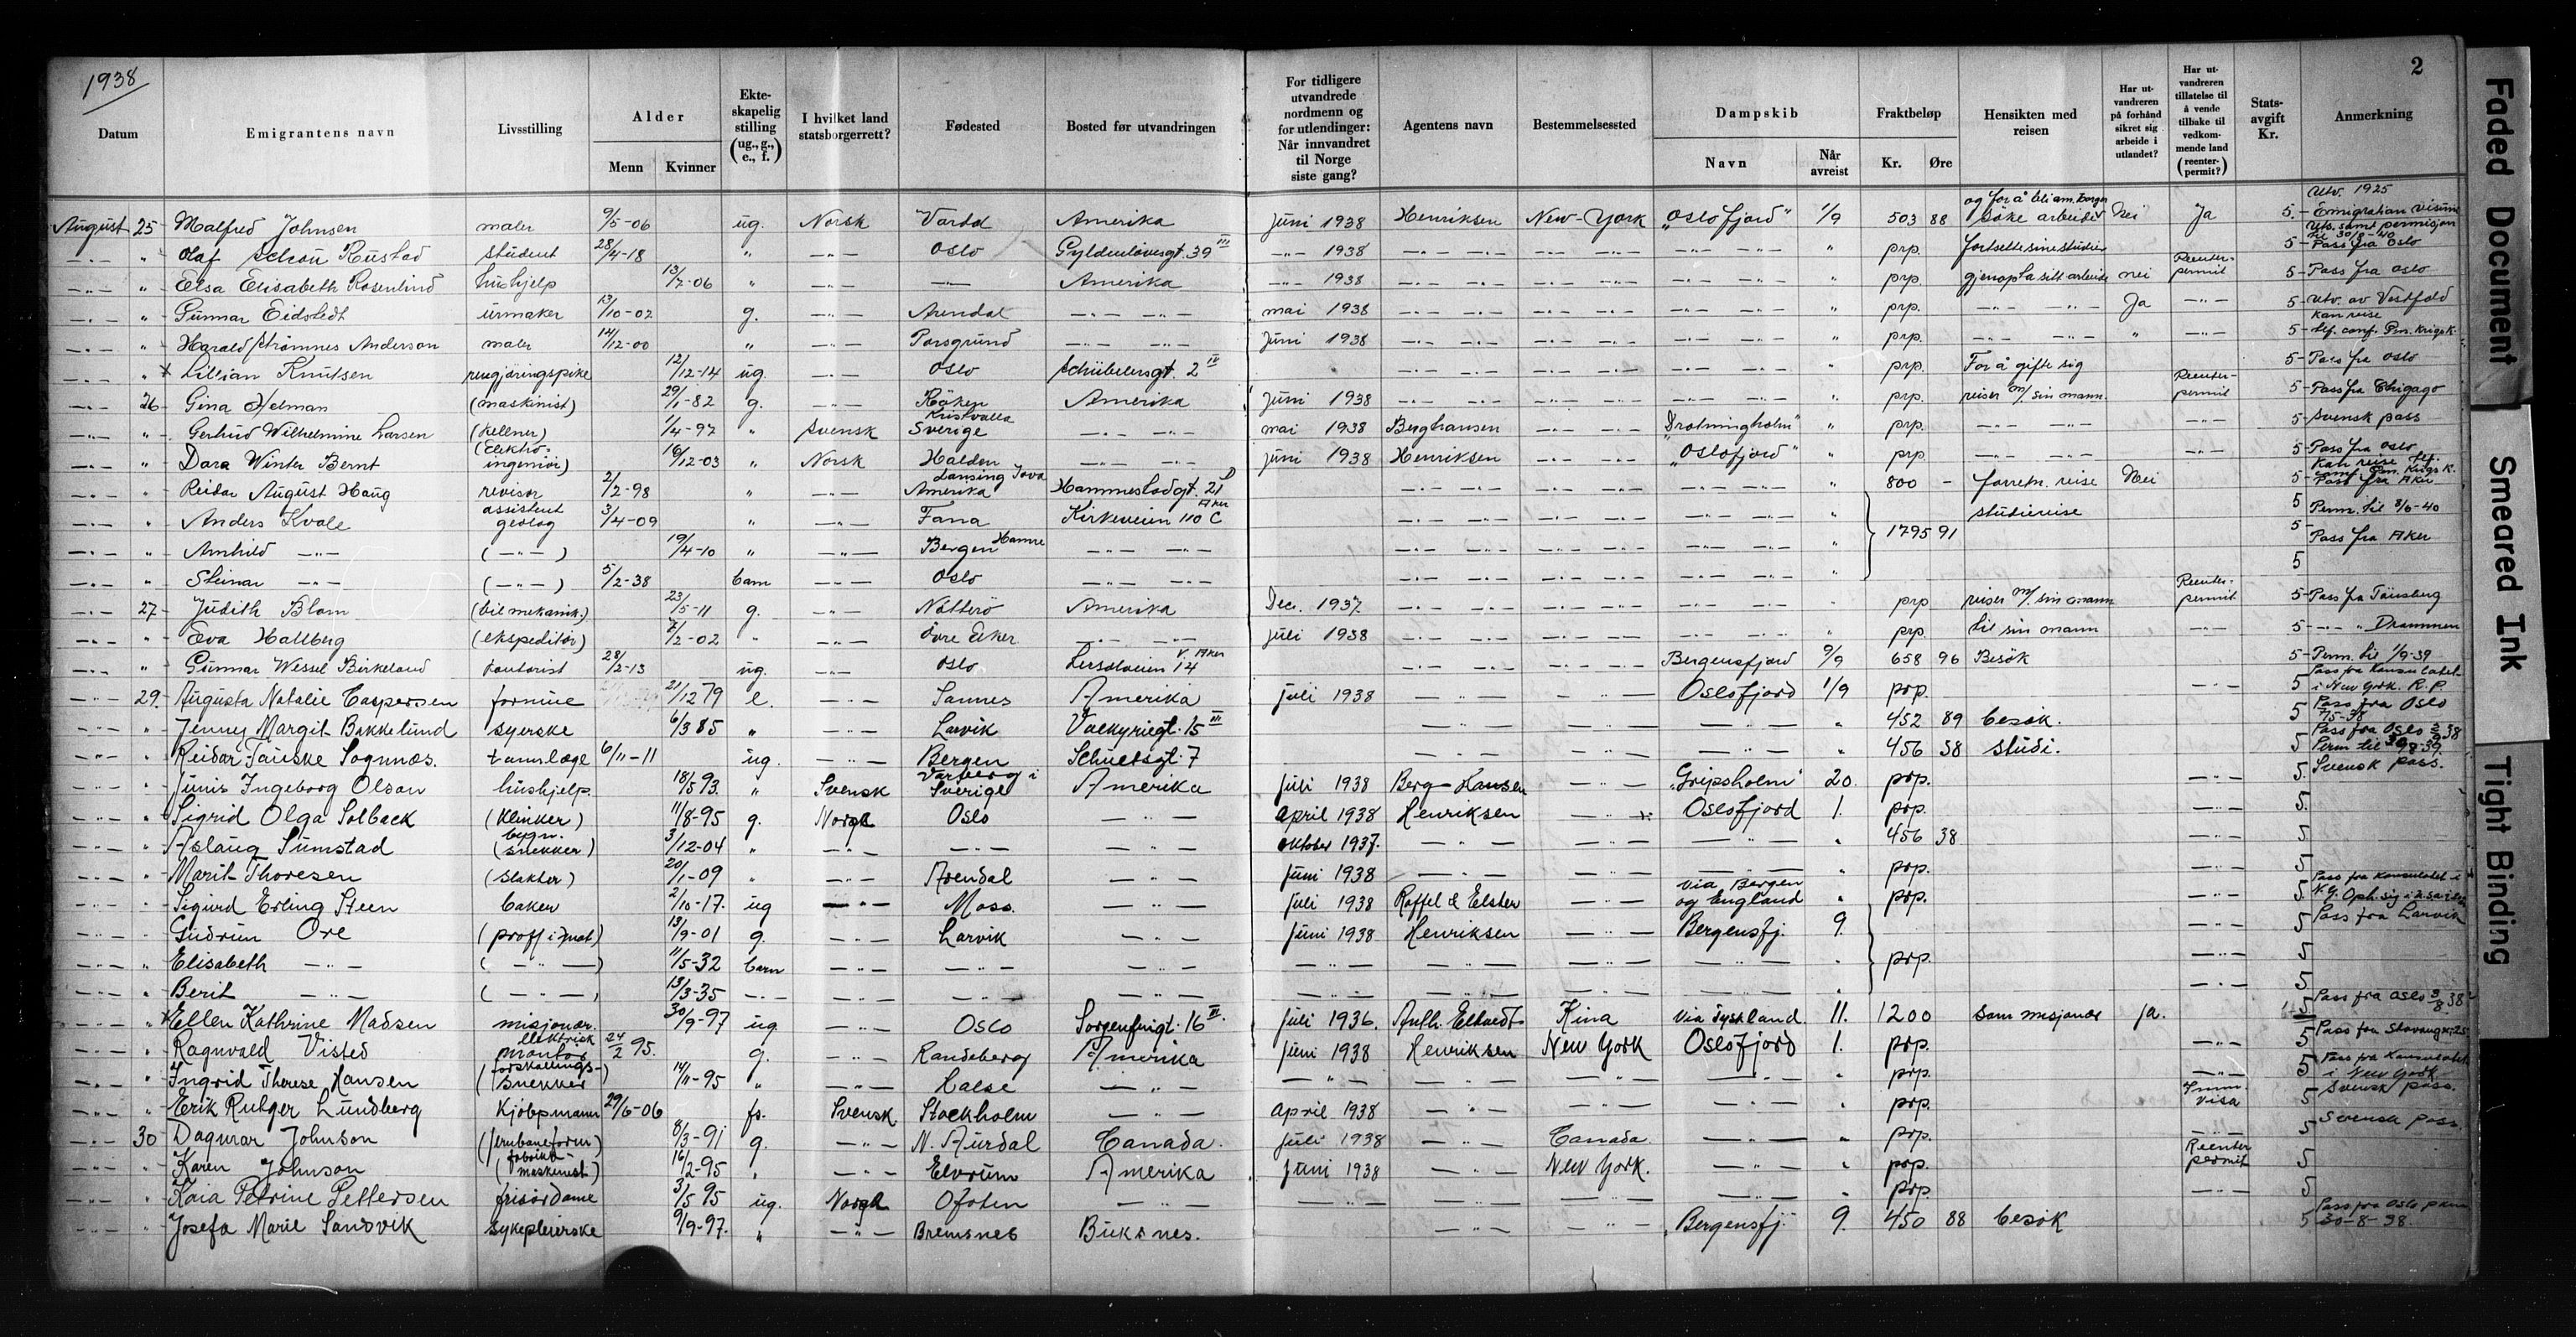 1938
2
Datum | Emigrantens navn | Livsstilling | Alder | Menn | Kvinner | Ekte-skapelig stilling (ug., g., e., f.) | I hvilket land statsborgerrett? | Fødested | Bosted før utvandringen | For tidligere utvandrede nordmenn og for utlendinger: Når innvandret til Norge siste gang? | Agentens navn | Bestemmelsessted | Dampskib | Navn | Når avreist | Fraktbeløp | Kr. | Øre | Hensikten med reisen | Har ut-vandreren på forhånd sikret sig arbeide i utlandet? | Har ut-vandreren tillatelse til å vende tilbake til vedkom-mende land (reenter-permit?) | Stats-avgift Kr. | Anmerkning
August 25 Malfred Johnsen maler 9/5-06 ug. Norsk Amerika Juni 1938 Henriksen New-York „Oslofjord" 1/9 503 88 og for å bli am. borger søke arbeide Nei Ja 5.- Utv. 1925 Emigration visum
—"— " Olaf Schou Rustad student 28/4-18 " —"— Oslo Gyldenløvesgt. 39 III —"— 1938 —"— —"— —"— " prp. fortsette sine studier 5- Pass fra Oslo
—"— " Elsa Elisabeth Rosenlind hushjelp 13/7-06 " —"— —"— Amerika —"— 1938 —"— —"— —"— " prp. gjenoppta sitt arbeide nei Reenter-permit 5- Pass fra Oslo
—"— " Gunnar Eidstedt urmaker 13/10-02 g. —"— Arendal —"— mai 1938 —"— —"— —"— " prp. —"— Ja —"— 5- Utv. av Vestfold
—"— " Harald Strømnes Anderson maler 12/12-00 " —"— Porsgrund —"— Juni 1938 —"— —"— —"— " prp. —"— " —"— 5- kan reise
—"— " x Lillian Knutsen rengjøringspike 12/12-14 ug. —"— Oslo Schübelersgt. 2 IV —"— —"— —"— " prp. For å gifte sig 5- Pass fra Oslo
—"— 26 Gina Helman (maskinist) 29/1-82 g. —"— Røken Amerika Juni 1938 —"— —"— —"— " prp. reiser m/. sin mann Reenter-permit 5- Pass fra Chigago
—"— " Gerhud Wilhelmine Larsen (kellner) 1/4-97 " Svensk Kristvalla Sverige —"— mai 1938 Berghansen —"— „Drotningholm" " prp. —"— —"— 5- Svensk pass
—"— " Dora Winter Bernt (Elektro-ingeniør) 16/12-03 " Norsk Halden —"— Juni 1938 Henriksen —"— „Oslofjord" " prp. —"— —"— 5- Pass fra Oslo
—"— " Reidar August Haug revisor 2/2-98 " —"— Lansing Iova Amerika —"— —"— —"— " 800 - forretn. reise Nei 5- Pass fra Aker
—"— " Anders Kvale assistent geolog 3/4-09 " —"— Fana Kirkeveien 110 C Aker —"— —"— —"— " 1795 91 studiereise 5 Perm. til 8/6-40
—"— " Arnhild —"— (—"—) 19/4-10 " —"— Bergen Hamre —"— —"— —"— —"— 5- Pass fra Aker
—"— " Steinar —"— (—"—) 5/2-38 barn —"— Oslo —"— —"— —"— —"— " 5
—"— 27 Judith Blom (bilmekanik.) 23/5-11 g. —"— Nøtterö Amerika Dec. 1937 —"— —"— —"— " prp reiser m/. sin mann Reenter-permit 5- Pass fra Tönsberg
—"— " Eva Hallberg (ekspeditör) 7/2-02 " —"— Övre Eker —"— juli 1938 —"— —"— —"— " prp. til sin mann 5- —"— Drammen
—"— " Gunnar Wessel Birkeland kontorist 28/2-13 ug. —"— Oslo Lersolveien 14 V. Aker —"— —"— Bergensfjord 9/9 658 96 Besök 5- Perm. til 1/9-39
—"— 29. Augusta Natalie Caspersen formue 21/12 79 e. —"— Sannes Amerika juli 1938 —"— —"— Oslofjord 1/9 prp. —"— 5 Pass fra Konsulatet i New York. R.P.
—"— " Jenny Margit Bakkelund syerske 6/3 85 " —"— Larvik Valkyriegt. 15 III —"— —"— —"— " 452 89 besøk. 5 Pass fra Oslo
—"— " Reidar Tauske Sognnæs. tannlæge 6/11-11 ug. —"— Bergen Schuetsgt. 7 —"— —"— —"— " 456 38 studi. 5 Pass fra Oslo
—"— " Junis Ingeborg Olson hushjelp. 18/5 93. " Svensk Varberg i Sverige Amerika Juli 1938 Berg-Hansen —"— „Gripsholm" 20. prp. —"— 5. Svensk pass.
—"— " Sigrid Olga Solback (Klinker) 11/8-95 g. Norge Oslo —"— April 1938 Henriksen —"— Oslofjord 1. prp. —"— 5.
—"— " Aslaug Sumstad (bygn. snekker) 3/12-04 " —"— —"— —"— oktober 1937. —"— —"— —"— " 456 38. —"— 5
—"— " Marit Thoresen (slakter) 20/1-09 " —"— Arendal —"— Juni 1938 —"— —"— —"— prp. —"— 5
—"— " Sigurd Erling Steen baker 2/10-17. ug —"— Moss. —"— Juli 1938 Raffel & Elster —"— via Bergen og England " prp. —"— 5. Pass fra Konsulatet i
—"— " Gudrun Ore (proff i mat) 13/9-01 g. —"— Larvik —"— Juni 1938 Henriksen —"— Bergensfj. 9. prp. 5 Pass fra Larvik
—"— " Elisabeth —"— (—"—) 11/5-32 barn —"— —"— —"— —"— —"— —"— —"— " —"— 5
—"— " Berit —"— (—"—) 13/3-35 —"— —"— —"— —"— —"— —"— —"— —"— " —"— 5
—"— " x Ellen Kathrine Madsen misjonær. 30/9-97 ug. —"— Oslo Sorgenfrigt. 16 III. Juli 1936. Anth. Eltvedt Kina via Tyskland 11. 1200 Som misjonær ja. 5 Pass fra Oslo 3/8 38
—"— " Ragnvald Visted elektrisk montør 24/2 95. g. —"— Randeberg Amerika Juni 1938 Henriksen New York Oslofjord 1. prp. —"— 5 Pass fra Stavanger
—"— " Ingrid Therese Hansen (forskallings-snekker) 14/11-95 " —"— Halse —"— —"— —"— —"— —"— prp. —"— 5 Pass fra Konsulatet i New York
—"— " Erik Rutger Lundberg Kjøbpmann 29/6-06 fr. Svensk Stockholm —"— April 1938 —"— —"— —"— " prp. Imm. Visa 5 Svensk pass.
—"— 30 Dagmar Johnson (jernbaneform) 8/3-91 g. —"— N. Aurdal Canada. Juli 1938 —"— Canada —"— " prp. —"— 5 Svensk pass.
—"— " Karen Johnson (fabrikk-maskinist) 16/2-95 " —"— Elvrum Amerika Juni 1938 —"— New York. —"— " prp. Reenter permit 5
—"— " Kaia Petrine Pettersen frisørdame 3/5 95 ug. Norge Ofoten —"— —"— —"— —"— —"— " prp —"— 5
—"— " Josefa Marie Sandvik sykepleierske 9/9-97. " —"— Bremsnes Buksnes. —"— —"— Bergensfj. 9. 450 88 besøk 5 Pass fra Oslo 30-8-38.
Faded Document
Smeared Ink
Tight Binding